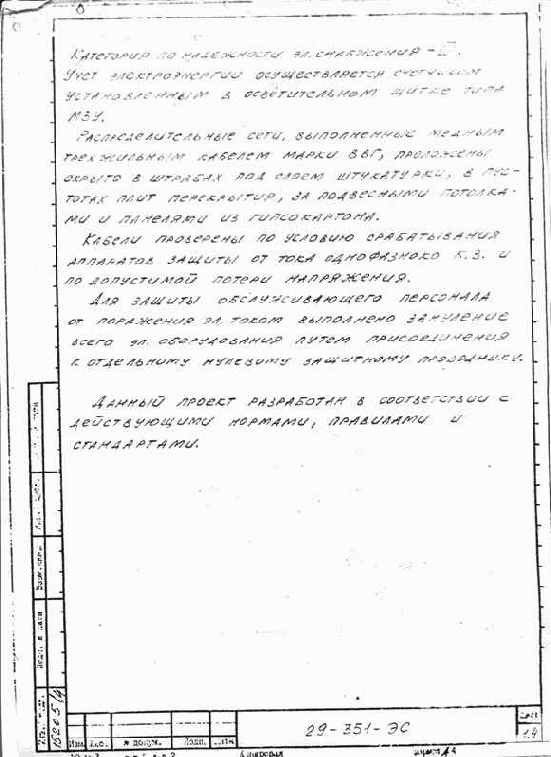 Категория по надежности эл. снабжения - III.
Учет электроэнергии осуществляется счетчиком
установленным в осветительном щитке типа
МЗУ.
Распределительные сети, выполненные медным
трехжильным кабелем марки ВВГ, проложены
скрыто в штрабах под слоем штукатурки, в пус-
тотах плит перекрытия, за подвесными потолка-
ми и панелями из гипсокартона.
Кабели проверены по условию срабатывания
аппаратов защиты от тока однофазного К.З. и
по допустимой потери напряжения.
Для защиты обслуживающего персонала
от поражения эл. током выполнено зануление
всего эл. оборудования путем присоединения
к отдельному нулевому защитному проводнику.
Данный проект разработан в соответствии с
действующими нормами, правилами и
стандартами.
29-351-ЭС
Лист
1.4
Изм. № докум. Подп. Дата
Копировал